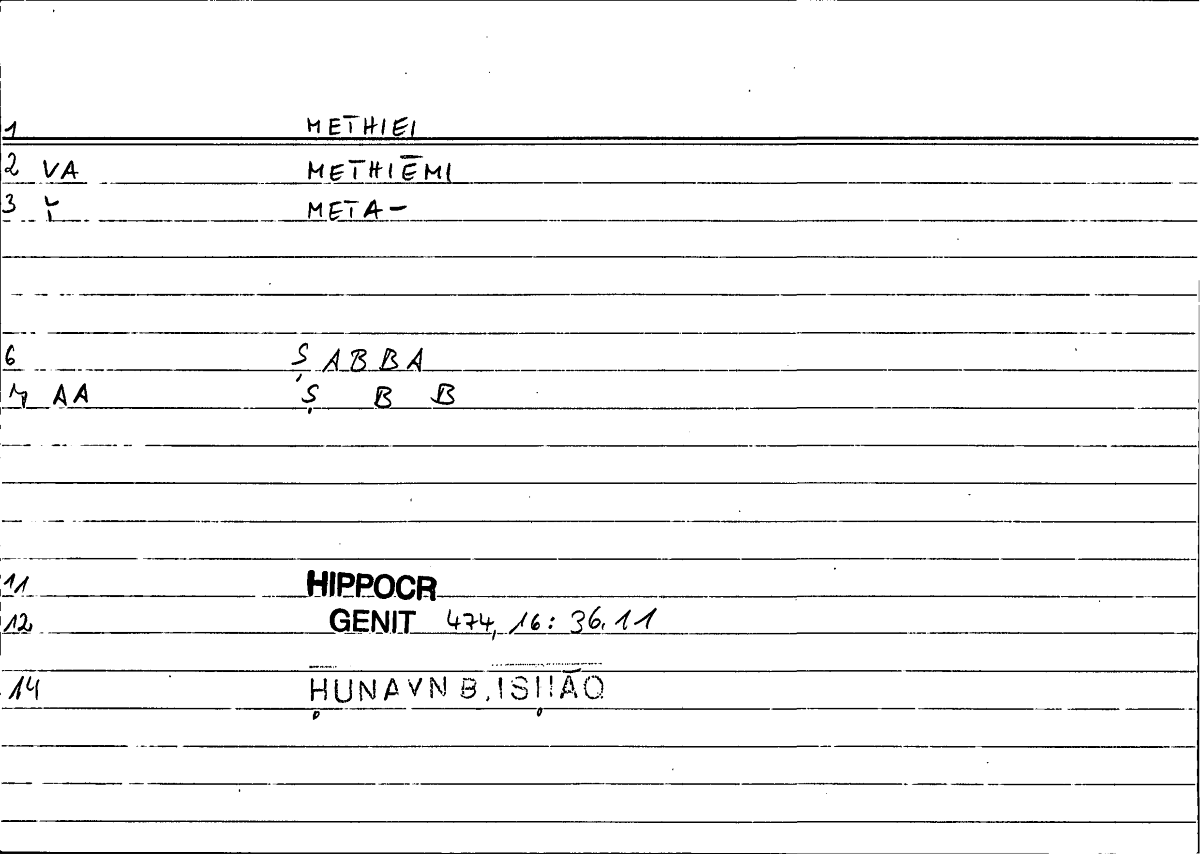 1 METHIEI
2 VA METHIĒMI
3 META-
6 ṢABBA
AA Ṣ B B
11 HIPPOCR
12 GENIT 474, 16: 36.11
14 ḤUNAYN B. ISḤĀQ